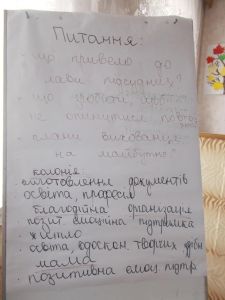 Питання:
- що привело до
лави підсудних?
- що зробити, щоб
не опинитися повторно
- плани вихованця
на майбутнє?
колонія
- виготовлення документів
освіта, професія
- благодійна організація
позит. емоційна підтримка
- житло
- освіта, вдоскон. творчих
- мама
- позитивна емоц підтр